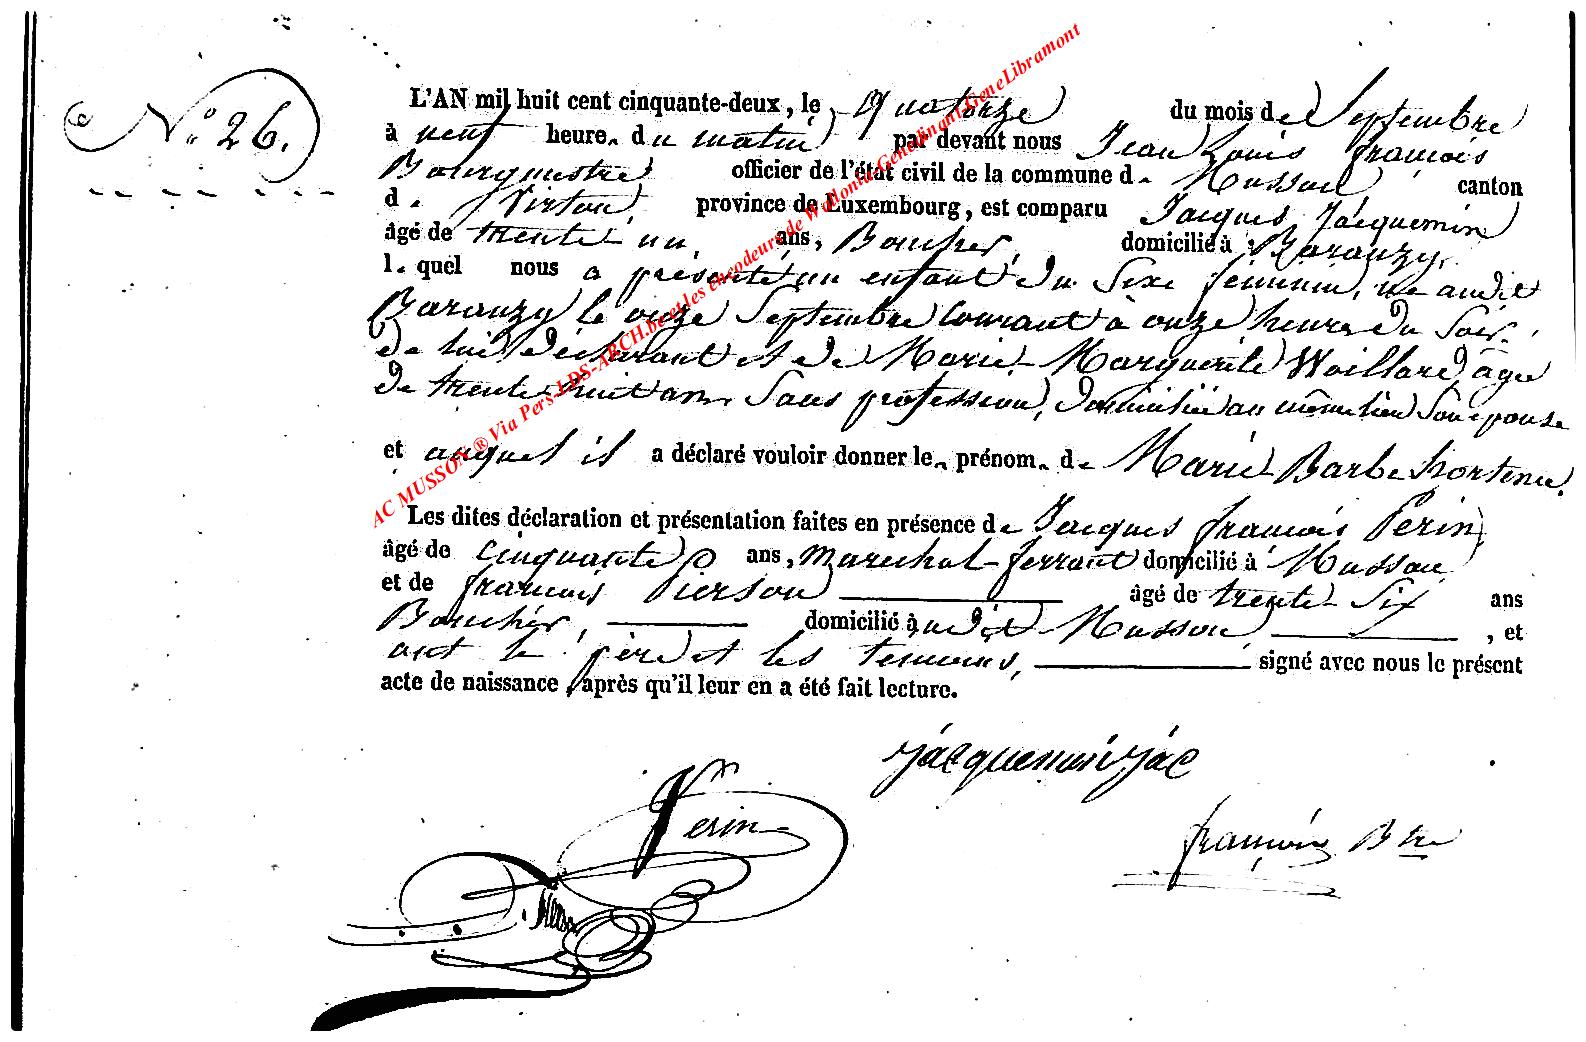 N° 26.
L'AN mil huit cent cinquante-deux, le Quatorze du mois de Septembre
à neuf heure. du matin par devant nous Jean Louis françois
Bourgmestre officier de l'état civil de la commune d. Musson canton
d. Virton province de Luxembourg, est comparu Jacques Jacquemin
âgé de trente un ans, Boucher, domicilié à Baranzy,
l. quel nous a présenté un enfant du Sexe féminin, né audit
Baranzy le onze Septembre courant à onze heure du Soir.
de lui déclarant et de Marie Marguerite Woillard, âgée
de trente huit ans Sans profession, domiciliée au même lieu Son épouse
et auquel il a déclaré vouloir donner le. prénom. de Marie Barbe hortense.
Les dites déclaration et présentation faites en présence de Jacques françois Perin
âgé de cinquante ans, marechal ferrant domicilié à Musson
et de françois Pierson âgé de trente Six ans
Boucher, domicilié audit Musson, et
ont le père et les temoins, signé avec nous le présent
acte de naissance, après qu'il leur en a été fait lecture.
Jacquemin Jac
Perin
françois Btre
AC MUSSON ® Via Pers-LDS-ARCH.be et les encodeurs de Wallonia-GeneDinant-GeneLibramont